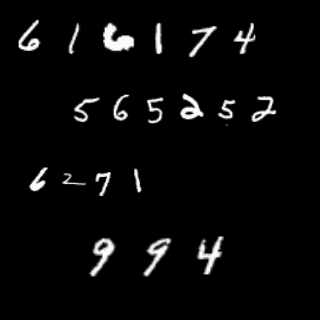 616174
565252
6271
994